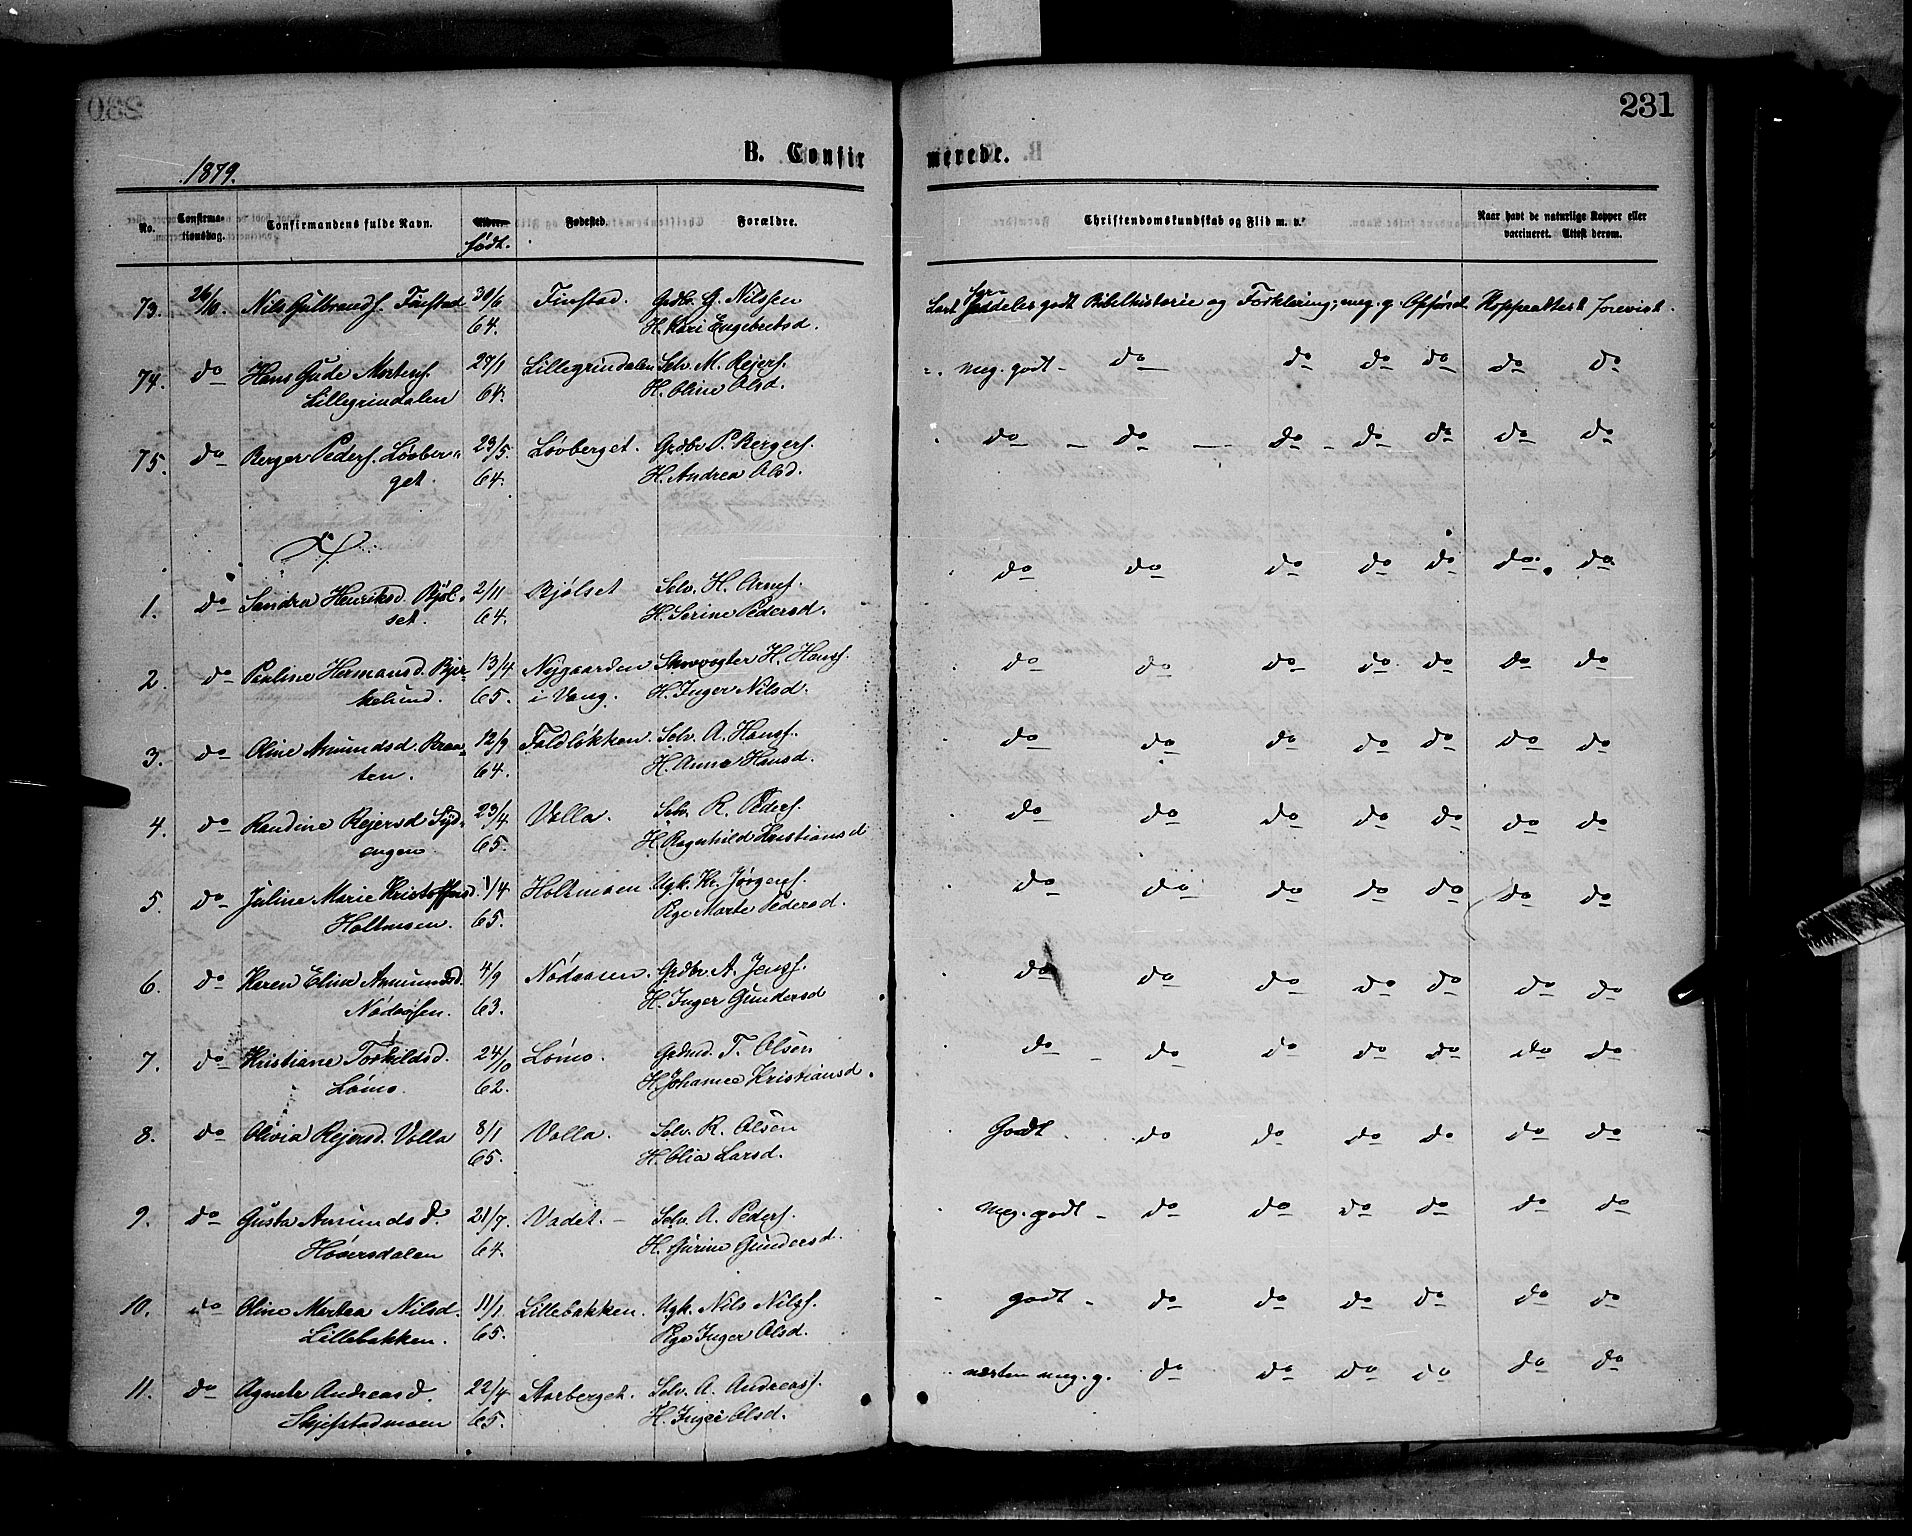 231
B. Confirmerede.
1879.
No. Confirmationsdag. Confirmandens fulde Navn. Alder. født. Fødested. Forældre. Christendomskundskab og Flid m. v. Naar havt de naturlige Kopper eller vaccineret. Attest derom.
73. 26/10. Nils Gulbrands. Finstad 30/6 Finstad. Grdbr. G. Nilssen Læst særdeles godt Bibelhistorie og Forklaring; meg. g. Opførsel Koppeattest forevist.
64. H. Kari Engebretsd.
74. do Hans Gude Mortens. 27/1 Lillegrindalen Selv. M. Rejers. meg. godt - do do do do do do
Lillegrindalen 64. H. Oline Olsd.
75. do Berger Peders. Løvber- 23/5 Løvberget. Grdbr P. Bergers. do - do - do - do do do do
get. 64. H. Andrea Olsd.
1. do Sandra Henriksd. Bjøl- 2/11 Bjølset Selv. H. Arnes. do do do do do do do
set. 64. H. Serine Pedersd.
2. do Pauline Hermansd. Bjer- 13/4 Nygaarden Skovvogter H. Hans. do do do do do do do
kelund. 65. i Vang. H. Inger Nilsd.
3. do Oline Amundsd. Braa- 12/9 Foldløkken Selv. A. Hans. do do do do do do do
ten. 64. H. Anne Hansd.
4. do Randine Rejersd. Syd- 23/4 Volla. Selv. R. Peders. do do do do do do do
engen 65. H. Ragnhild Kristiansd
5. do Juline Marie Kristoffersd. 1/4 Holtmoen Ugk. Kr. Jørgens. do do do do do do do
Holtmoen. 65. Pige Marte Pedersd.
6. do Karen Eline Amundsd. 4/9 Nødaasen. Grdbr A. Jens. do do do do do do do
Nødaasen. 63. H. Inger Gundersd
7. do Kristiane Torkildsd. 24/10 Lømo. Grdmd. T. Olsen do - do do do do do do
Lømo. 62. H. Johanne Kristiansd.
8. do Olivia Rejersd. Volla 8/1 Volla. Selv. R. Olsen Godt. do do do do do do
65. H. Olia Larsd.
9. do Gusta Amundsd. 21/7. Vadet. - Selv. A. Peders. meg. godt - do do do do do do
Høversdalen 64. H. Gurine Gundersd.
10. do Oline Martea Nilsd. 11/1. Lillebakken. Ugk. Nils Nils. godt - do do do do do do
Lillebakken. 65. Pige Inger Olsd.
11. do Agnete Andreasd. 22/4 Storberget. Selv. A. Andreas. næsten meg. g. do do do do do do
Skjefstadmoen 65. H. Inger Olsd.